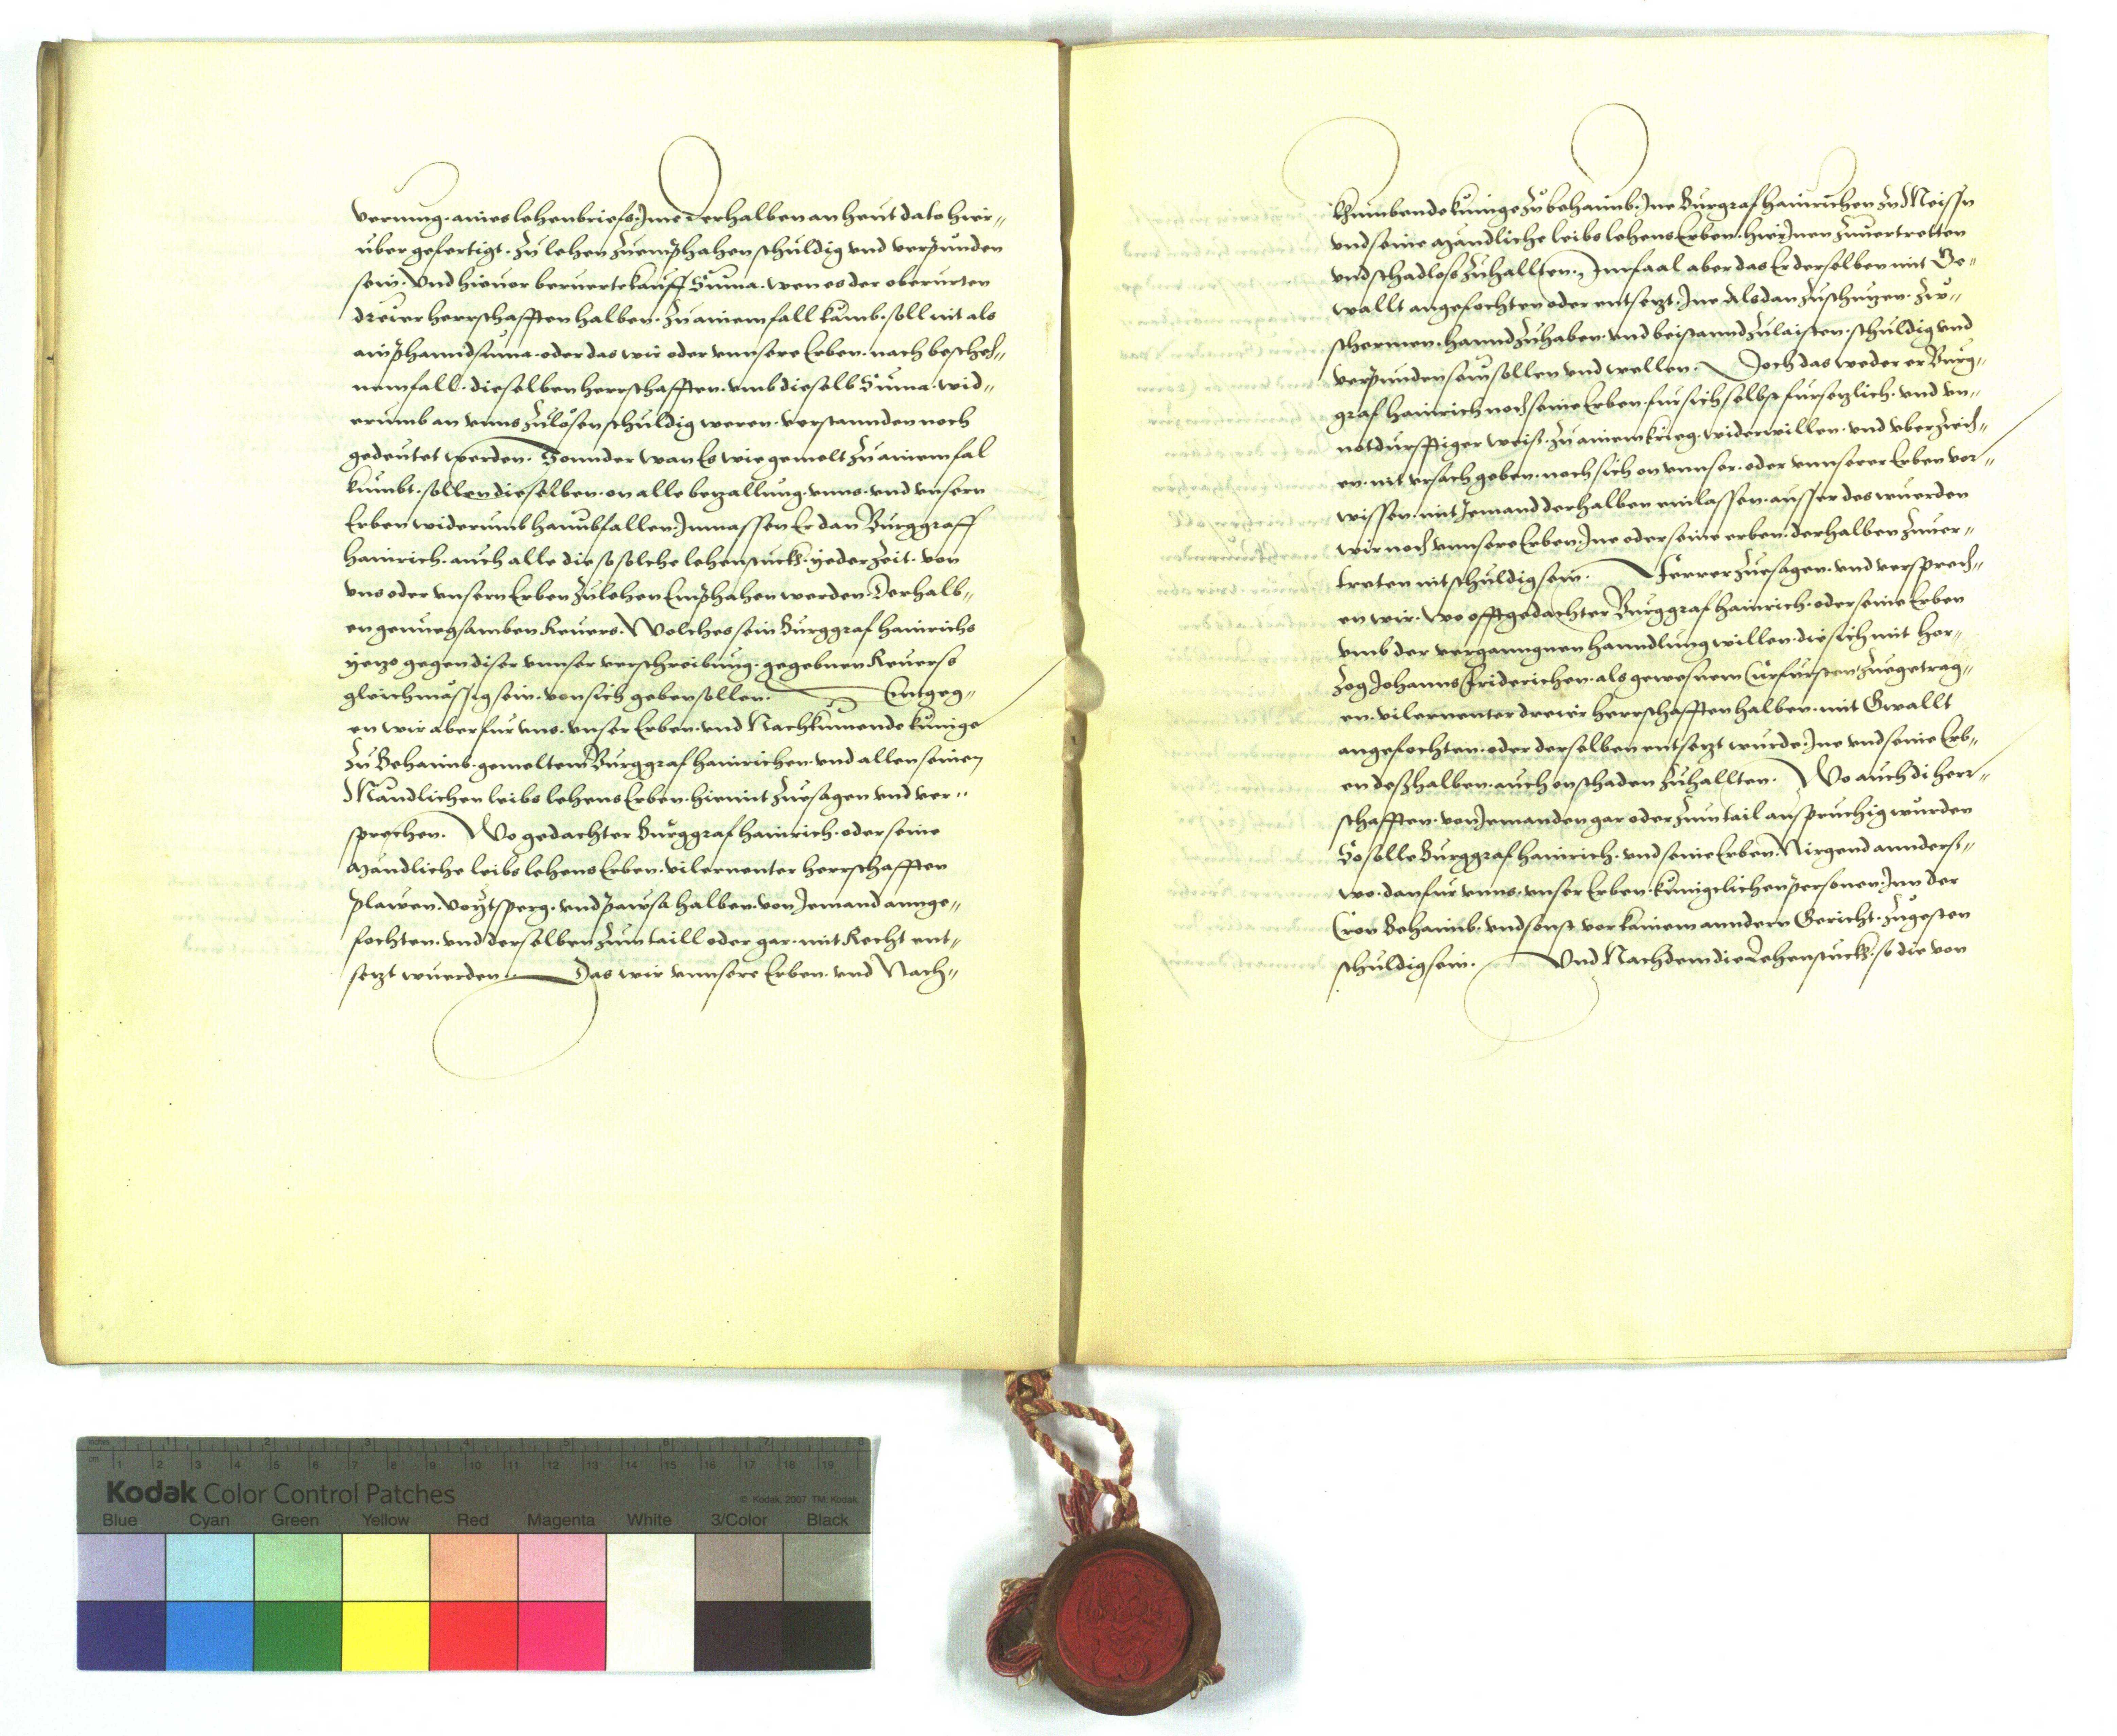 verung. aines lehenbriefs. Ime derhalben an heut dato hier-
uber gefertigt. zu lehen zuemphahen schuldig vnd verpunden
sein. Vnd hieuor beruerte kauff Suma. wen es der oberurten
dreier herrschafften halben. zu ainem fall kämb. soll nit als
ain phanndsuma. oder das wir oder vnnsere Erben. nach bescheh-
nem fall. dieselben herrschafften. vmb dieselb Suma. wid-
erumb an vnns zulösen schuldig weren. verstannden noch
gedeutet werden. Sonnder wan Es wie gemelt zu ainem fal
kumbt. sollen dieselben. on alle bezallung. vnns. vnd vnsern
Erben widerumb haimbfallen. Inmassen Er dan Burggraff
Hainrich. auch alle die so solche lehenstuckh. yeder zeit. von
vns oder vnsern Erben zu lehen Emphahen werden. Derhalb-
en genuegsamben Reuers. Welches sein Burggraf Hainrichs
yezo gegen diser vnnser verschreibung. gegebnen Reuerss
gleichmässig sein. von sich geben sollen. Entgeg-
en wir aber fur vns. vnser Erben. vnd Nachkumende kunige
zu Behaimb. gemeltem Burggraf Hainrichen. vnd allen seinen
Mandlichen leibs lehens Erben. hiemit zuesagen vnd ver-
sprechen. Wo gedachter Burggraf Hainrich. oder seine
Mandliche leibs lehens Erben. vilernenter herrschafften
Plawen. Voytsperg. vnd Pawsa halben. von Jemand annge-
fochten. vnd derselben zum taill oder gar. mit Recht ent-
sezt wuerden. Das wir vnnsere Erben. vnd Nach-
khumbende kunige zu behaimb. Ine Burgraf Hainrichen zu Meissn
vnd seine Mandliche leibs lehens Erben. hierInnen zuuertretten
vnd schadloss zuhallten. Im faal aber das Er derselben mit Ge-
wallt angefochten oder entsezt. Ine Als dan zuschuzen. zu-
schermen. hannd zuhaben. vnd beistannd zulaisten. schuldig vnd
verpunden sein sollen vnd wellen. Doch das weder er Burg-
graf Hainrich noch seine Erben. fur sich selbst fursezlich. vnd vn-
notdurfftiger weiss. zu ainem krieg. widerwillen. vnd vberzieh-
en. nit vrsach geben. noch sich on vnnser. oder vnnserer Erben vor-
wissen. mit Jemand derhalben einlassen. ausser des wuerden
wir noch vnnsere Erben. Ine oder seine erben. derhalben zuuer-
treten nit schuldig sein. Ferrer zuesagen. vnd versprech-
en wir. wo offtgedachter Burggraf Hainrich. oder seine Erben
vmb der verganngnen hanndlung willen. die sich mit Her-
zog Johanns Friderichen. als gewesnem Curfursten zuegetrag-
en. vilernenter dreier herrschafften halben. mit Gwallt
angefochten. oder derselben entsezt wurde. Ine vnd seine Erb-
en desshalben. auch on schaden zuhallten. Wo auch di herr-
schafften. von Jemanden gar oder zum tail anspruchig wurden
So solle Burggraf Hainrich. vnd seine Erben. Nirgend annders-
wo. dan fur vnns. vnser Erben. kunigclichen personen. Inn der
Cron Behaimb. vnd sonst vor kainem anndern Gericht. zugesten
schuldig sein. Vnd Nachdem die Lehenstuckh. so die von
Kodak Color Control Patches
© Kodak, 2007 TM: Kodak
Blue Cyan Green Yellow Red Magenta White 3/Color Black